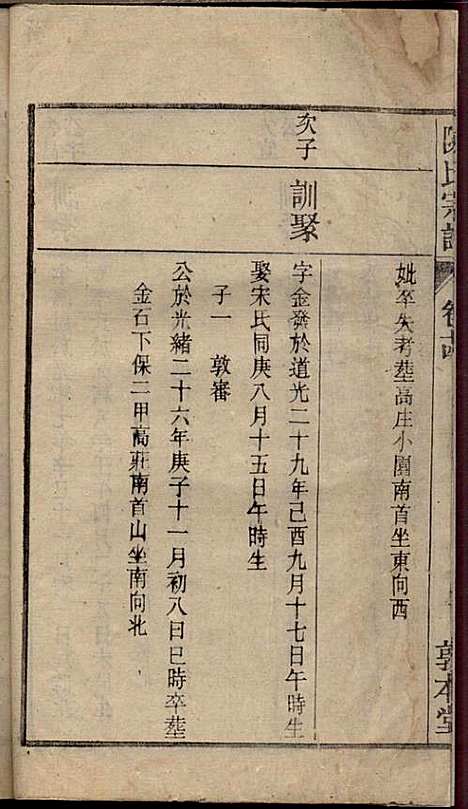 陳氏宗譜
卷十四
敦本堂
妣卒失考塟高庄小園南首坐東向西
次子
訓聚
字金發於道光二十九年己酉九月十七日午時生
娶宋氏同庚八月十五日午時生
子一 敦審
公於光緒二十六年庚子十一月初八日巳時卒塟
金石下保二甲高莊南首山坐南向北